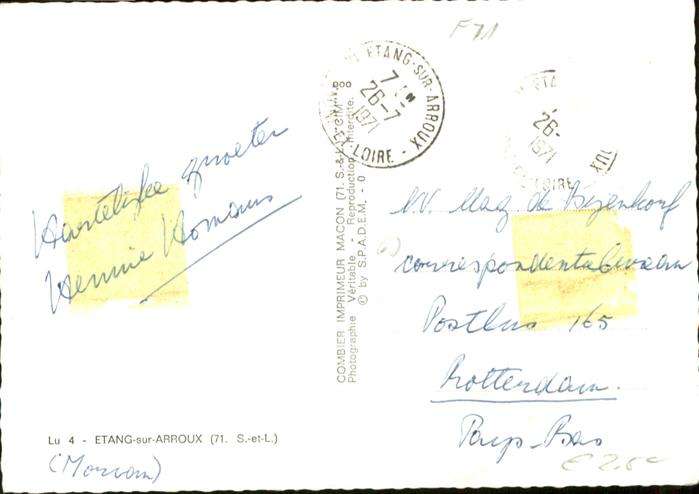 F 71
Hartelijke groeten
Hennie Homans
ETANG-SUR-ARROUX
7
26-7
1971
LOIRE
26-
1971
LOIRE
COMBIER IMPRIMEUR MACON (71. S.-&-L.) "CIM"
Photographie Véritable - Reproduction Interdite.
© by S.P.A.D.E.M. - 0
N.V. Mag. de Bijenkorf
correspondentiebureau
Postbus 165
Rotterdam.
Pays-Bas
Lu 4 - ETANG-sur-ARROUX (71. S.-et-L.)
(Morvan)